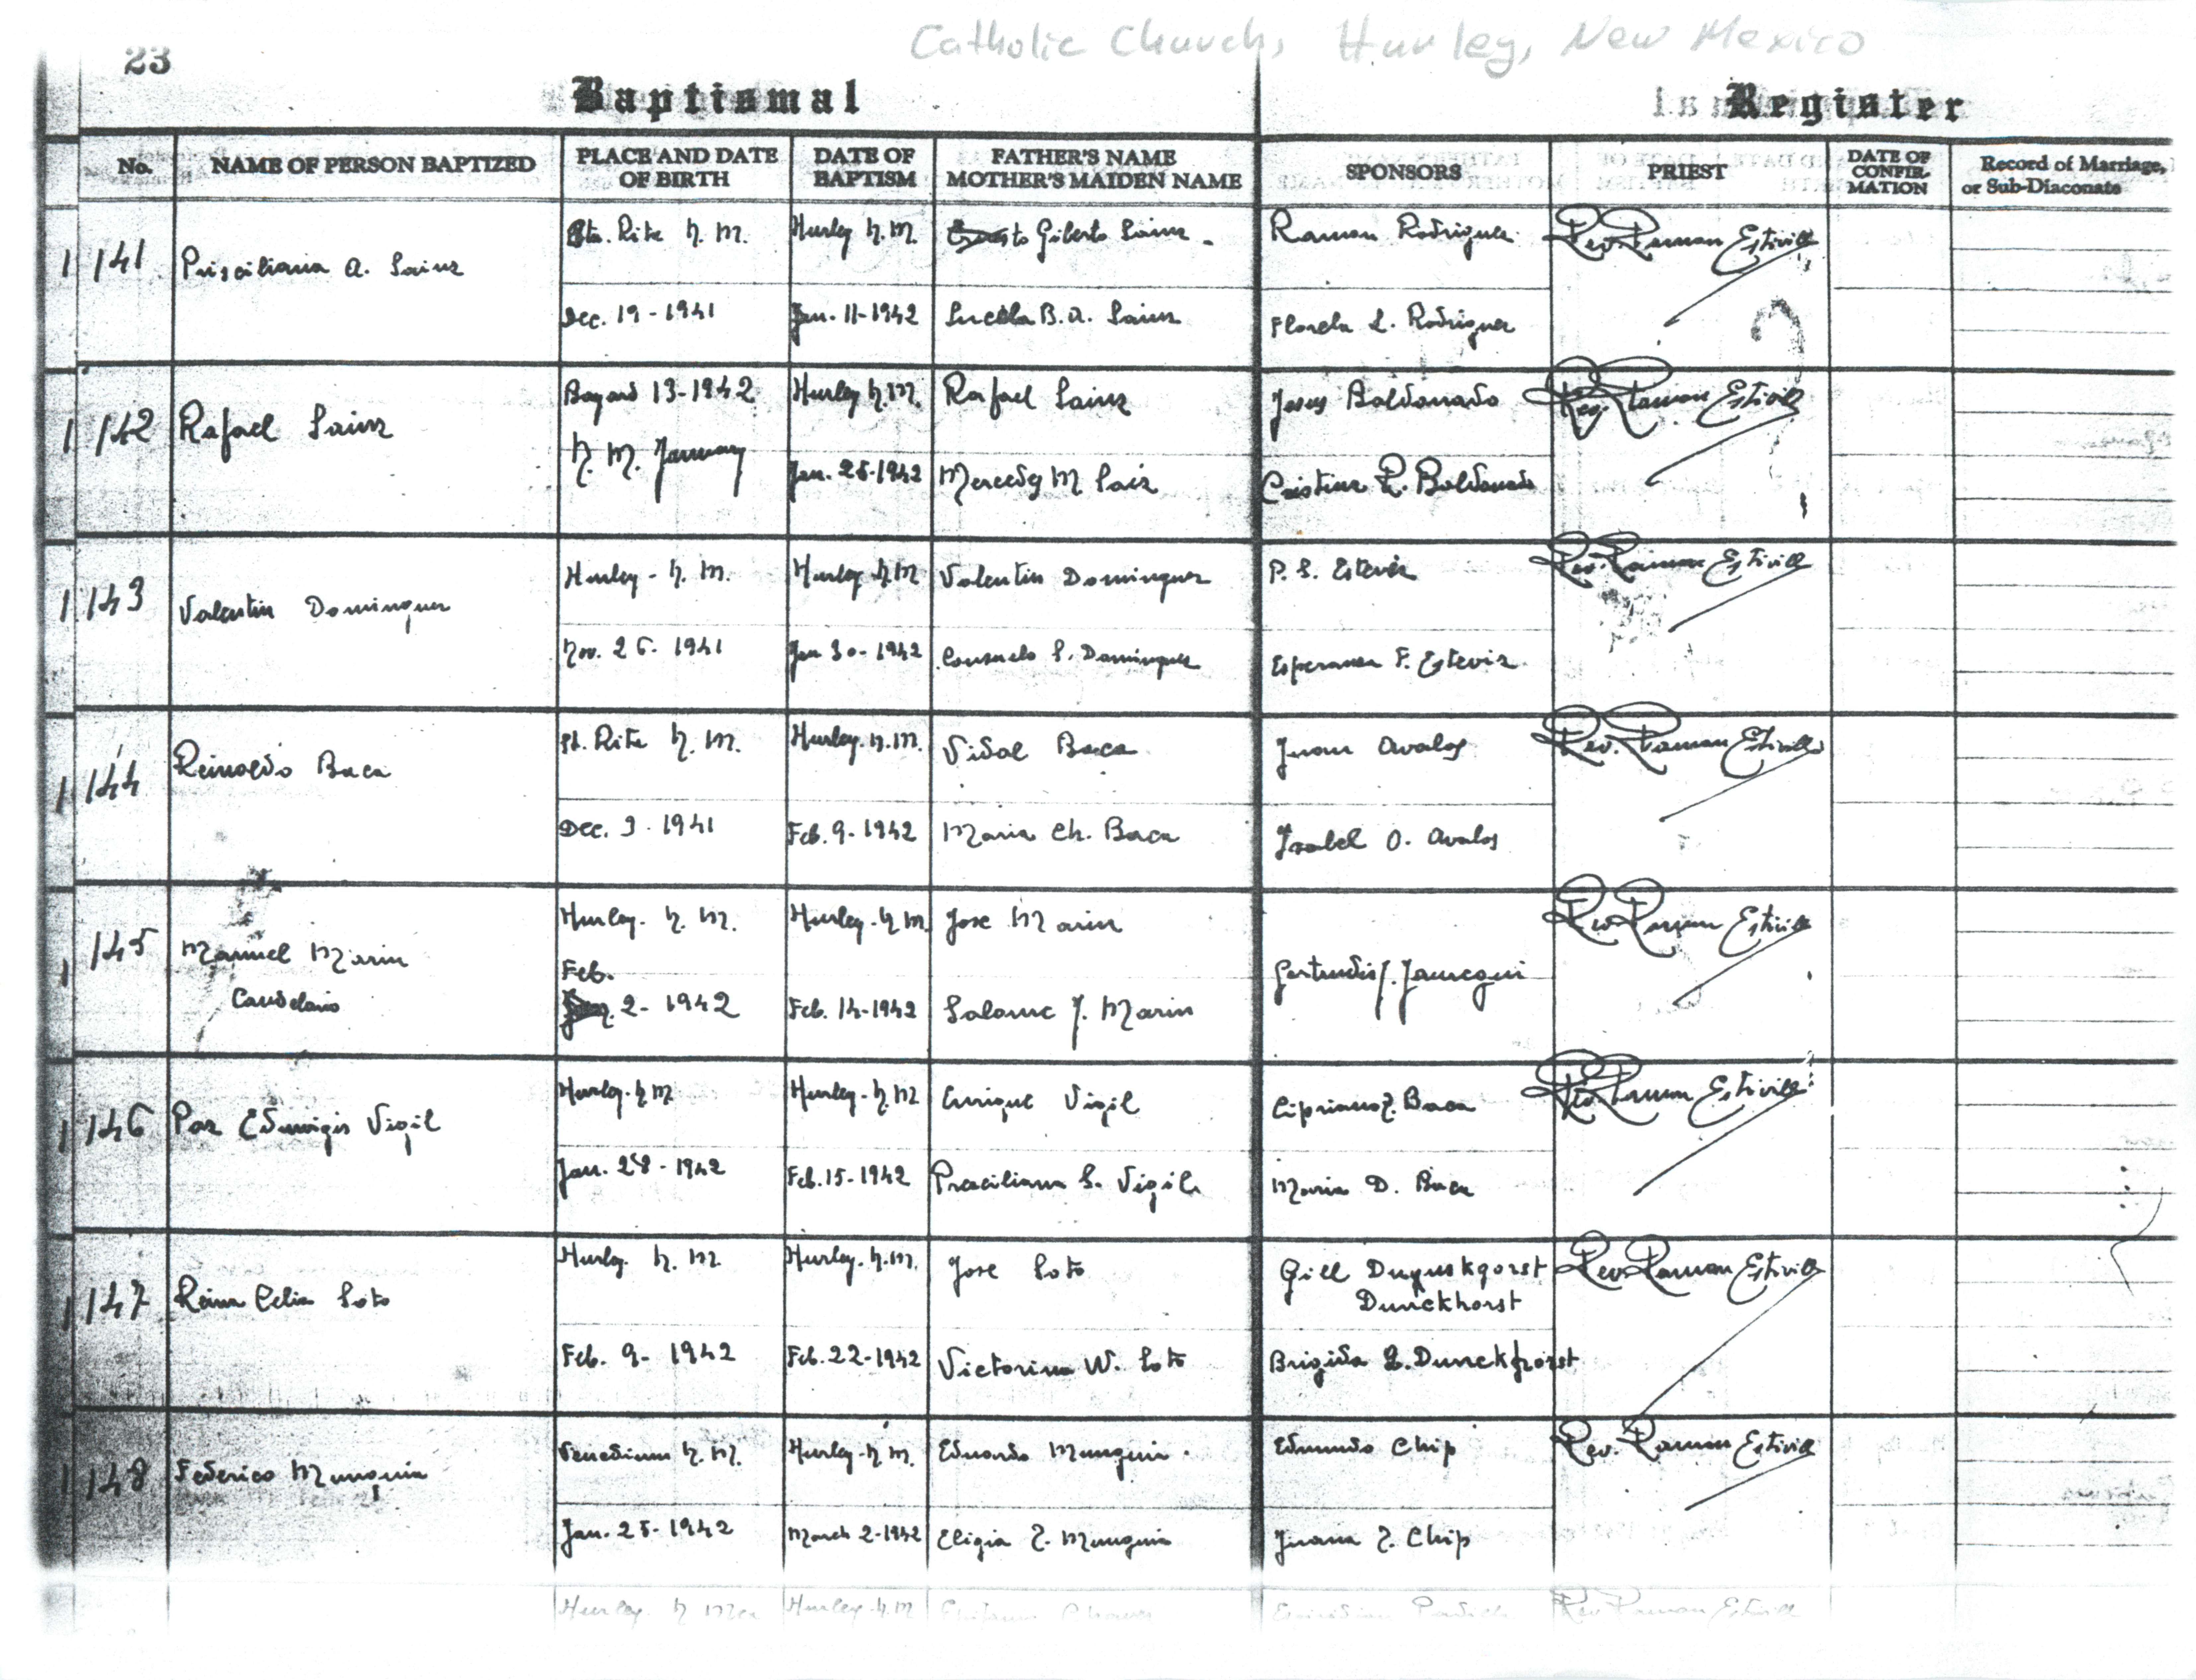 Catholic Church, Hurley, New Mexico
23
Baptismal Register
No. NAME OF PERSON BAPTIZED PLACE AND DATE OF BIRTH DATE OF BAPTISM FATHER'S NAME MOTHER'S MAIDEN NAME SPONSORS PRIEST DATE OF CONFIR- MATION Record of Marriage, or Sub-Diaconate
Sta. Rita N. M. Hurley N. M. Giberto Sainz Ramon Rodriguez Rev. Ramon Estivill
1141 Prisciliana A. Sainz
Dec. 19 - 1941 Jan. 11-1942 Lucilla B. A. Sainz Florela L. Rodriguez
Bayard 13-1942 Hurley N. M. Rafael Sainz Jesus Baldonado Rev. Ramon Estivill
1142 Rafael Sainz
N. M. January Jan. 25-1942 Mercedes M Saiz Cristina R. Baldonado
Hurley - N. M. Hurley N. M Valentin Dominguez P. S. Estevis Rev. Ramon Estivill
1143 Valentin Dominguez
Nov. 26. 1941 Jan 30-1942 Consuelo S. Dominguez Esperanza F. Estevis.
St. Rita N. M. Hurley. N. M. Vidal Baca Juan Avalos Rev. Ramon Estivill
1144 Reinaldo Baca
Dec. 9. 1941 Feb. 9-1942 Maria Ch. Baca Isabel O. Avalos
Hurley. N. M. Hurley-N M. Jose Marin Rev Ramon Estivill
1145 Manuel Marin
Feb. Gertrudis J. Jauregui
Candelario 2- 1942 Feb. 14-1942 Salome J. Marin
Hurley-N M Hurley-N. M Enrique Vigil Cipriano Z. Baca Rev. Ramon Estivill
1146 Paz Eduvigis Vigil
Jan. 28 - 1942 Feb. 15-1942 Praciliana S. Vigil Maria D. Baca
Hurley. N. M. Hurley. N. M. Jose Soto Gill Duquskqorst Rev. Ramon Estivill
Dunckhorst
1147 Reina Celia Soto
Feb. 9- 1942 Feb. 22-1942 Victorina W. Soto Brigida Dunckhorst
N. M. Hurley-N M. Eduardo Munguia. Edmundo Chip Rev. Ramon Estivill
1148 Federico Munguia
Jan. 25-1942 March 2-1942 Eligia Z. Munguia Juana Z. Chip
Hurley. N Hurley-N. M Chavez Rev Ramon Estivill